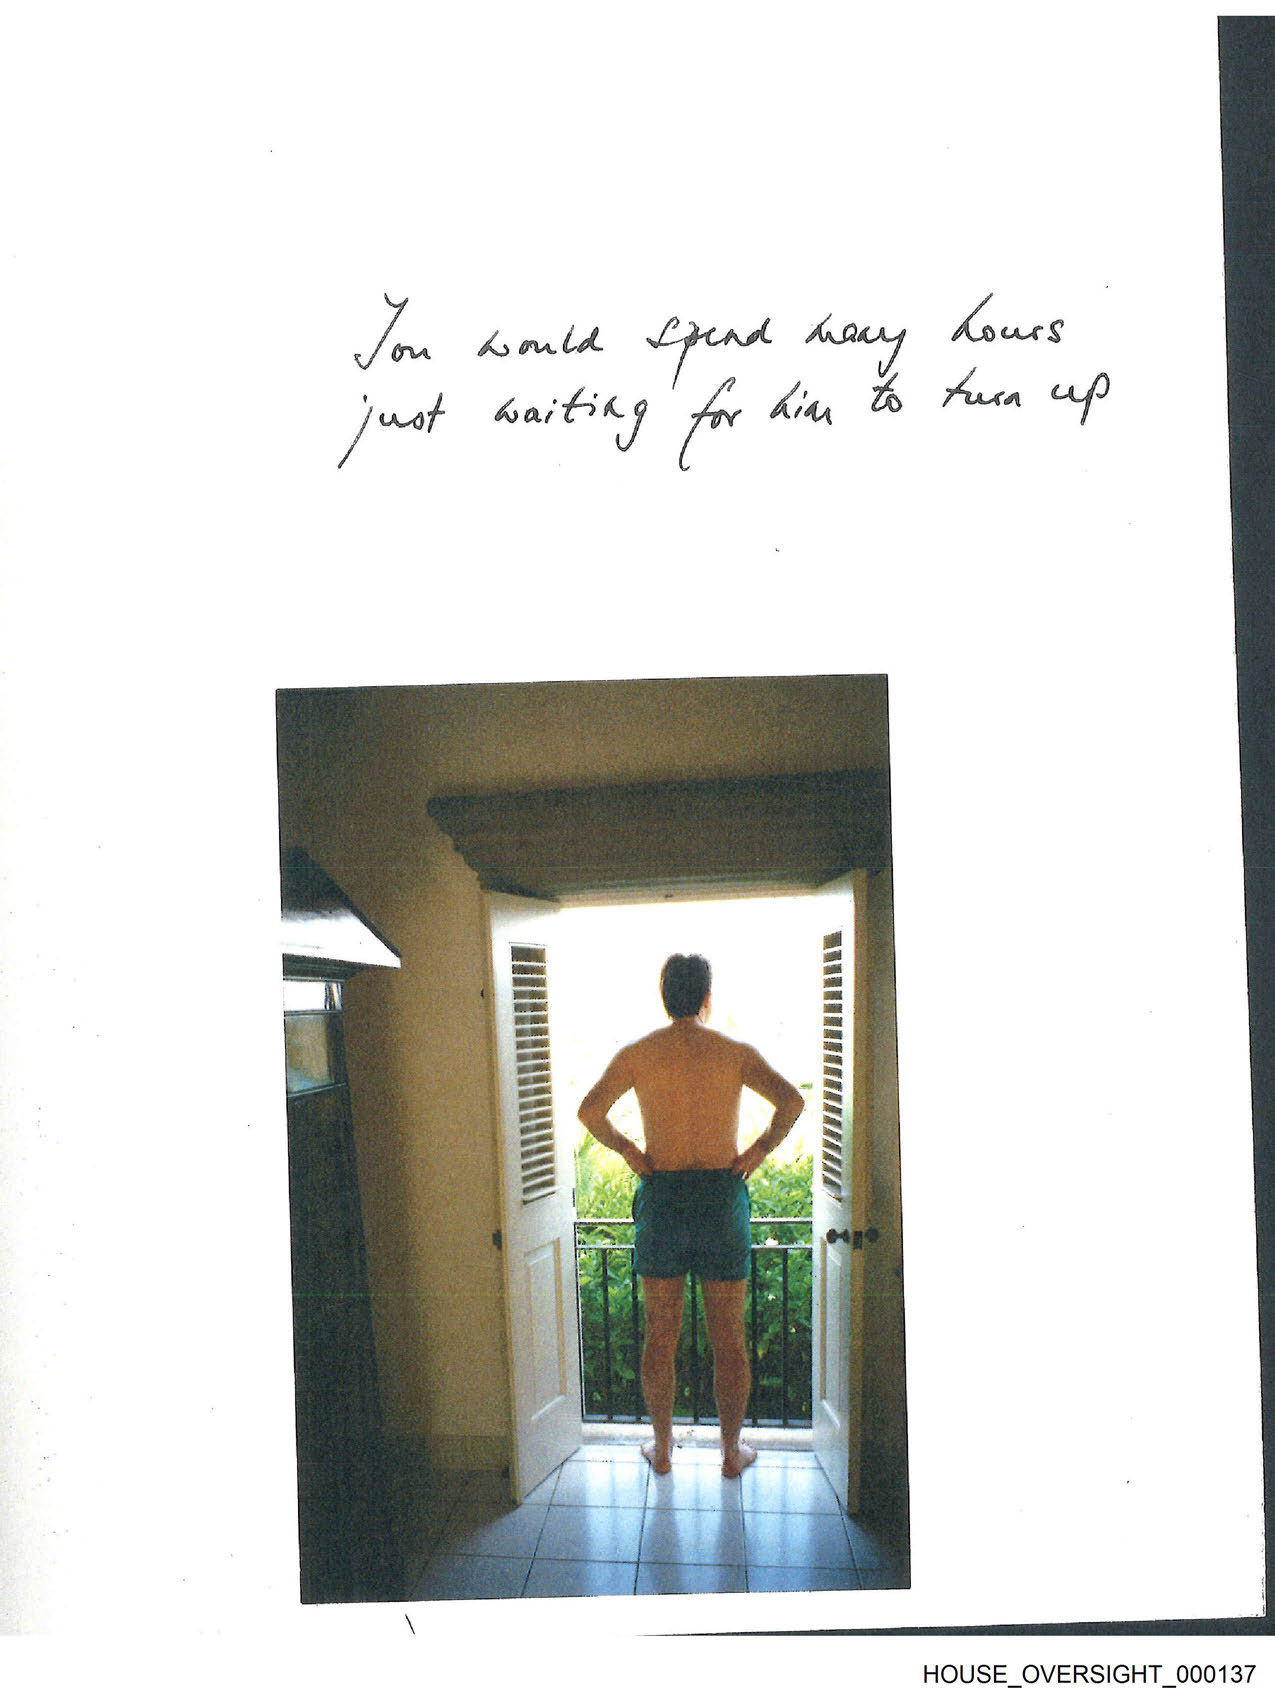 You would spend many hours
just waiting for him to turn up
HOUSE_OVERSIGHT_000137